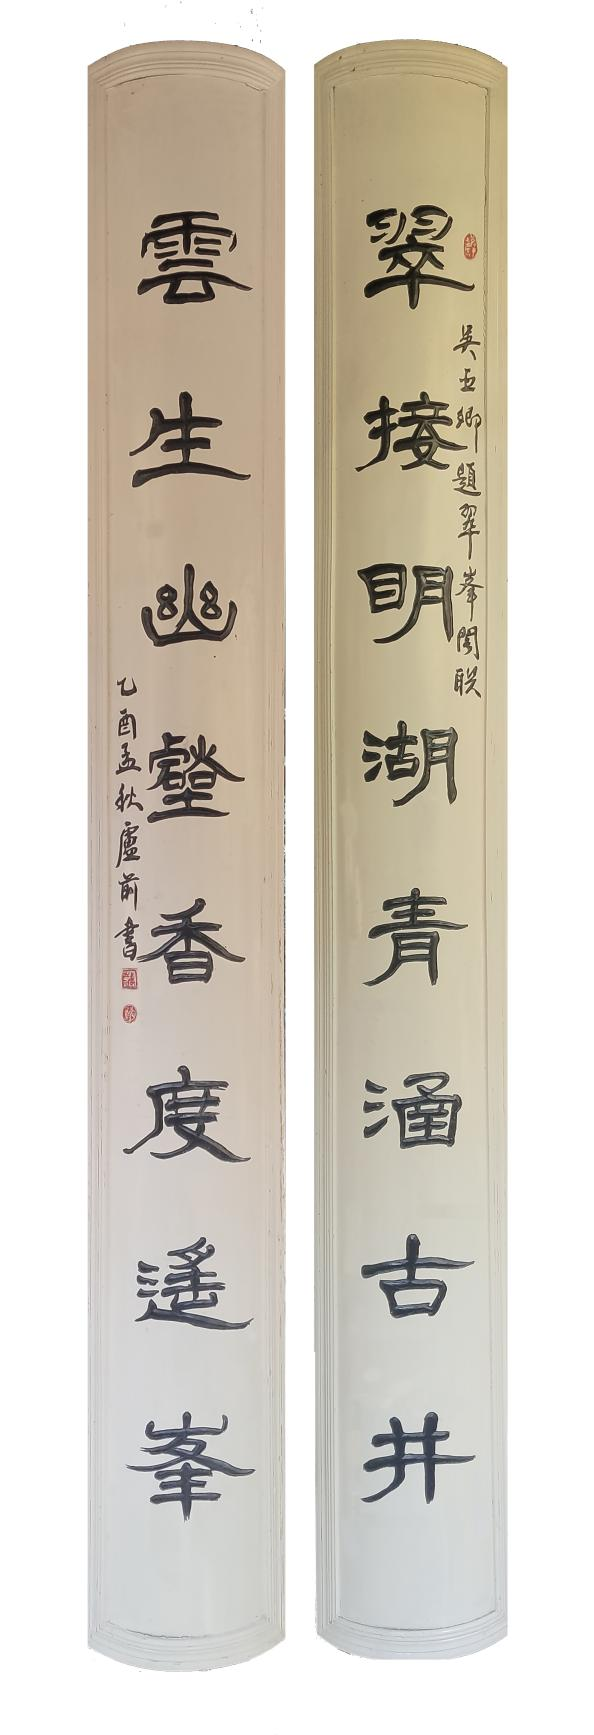 翠接明湖青涵古井
吴亚卿題翠峯閣联
雲生幽壑香度遙峯
乙酉孟秋盧前書